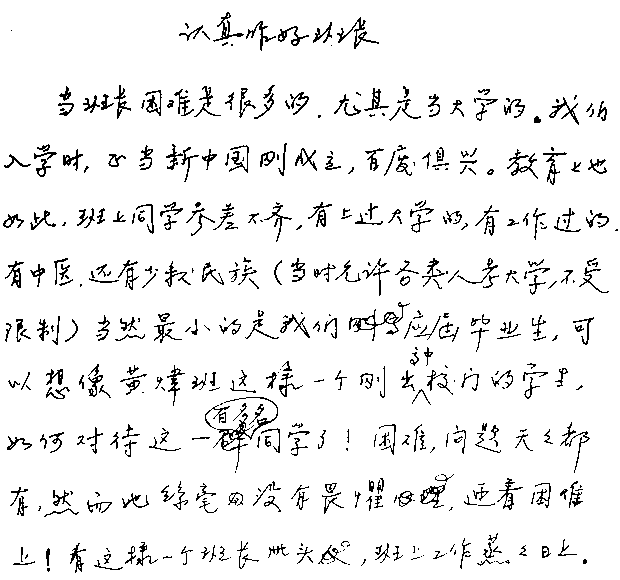 认真作好班长
当班长困难是很多的，尤其是当大学的。我们
入学时，正当新中国刚成立，百废俱兴。教育上也
如此，班上同学参差不齐，有上过大学的，有工作过的，
有中医，还有少数民族（当时允许各类人考大学，不受
限制）当然最小的是我们应届毕业生，可
以想像黄炜班这样一个刚出高中校门的学生，
如何对待这一百多名同学了！困难，问题天天都
有，然而他丝毫没有畏惧心理，迎着困难
上！有这样一个班长带头，班上工作蒸蒸日上。